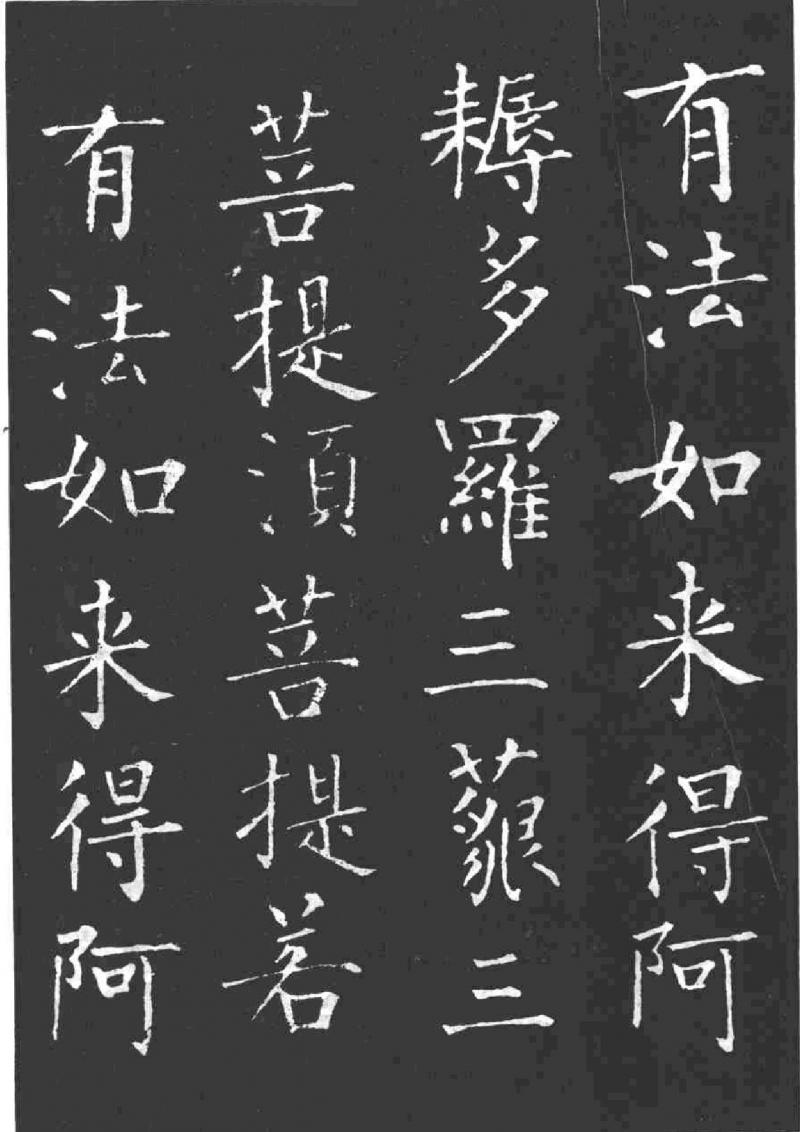 有法如来得阿
耨多羅三藐三
菩提湏菩提若
有法如来得阿